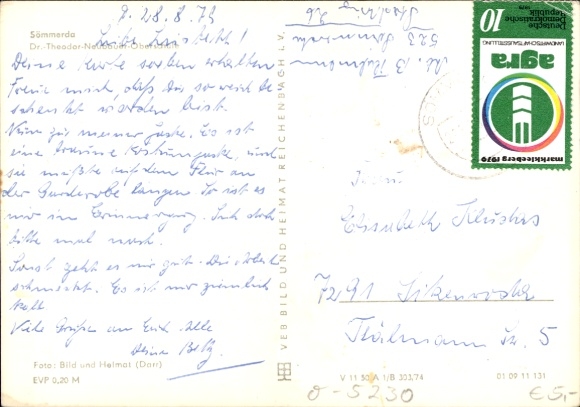 Sömmerda
Dr.-Theodor-Neubauer-Oberschule
28.8.79
Liebe Elisabeth!
Deine Karte soeben erhalten
Freue mich, daß Du so reich be-
schenkt worden bist.
Nun zu meiner Jacke. Es ist
eine braune Kostümjacke, und
sie müßte auf dem Flur an
der Garderobe hangen So ist es
mir in Erinnerung. Sieh doch
bitte mal nach.
Sonst geht es mir gut. Die Arbeit
schmeckt. Es ist nur ziemlich
kalt.
Viele Grüße an Euch Alle
Deine
Foto: Bild und Heimat (Darr)
EVP 0,20 M
VEB BILD UND HEIMAT REICHENBACH I. V.
523
markkleeberg 1979
agra
LANDWIRTSCHAFTSAUSSTELLUNG
Deutsche
Demokratische
Republik
1979
10
Frau
Elisabeth
7291
Thälmann Str. 5
V 11 50 A 1/B 303/74
01 09 11 131
0-5230
€5,-